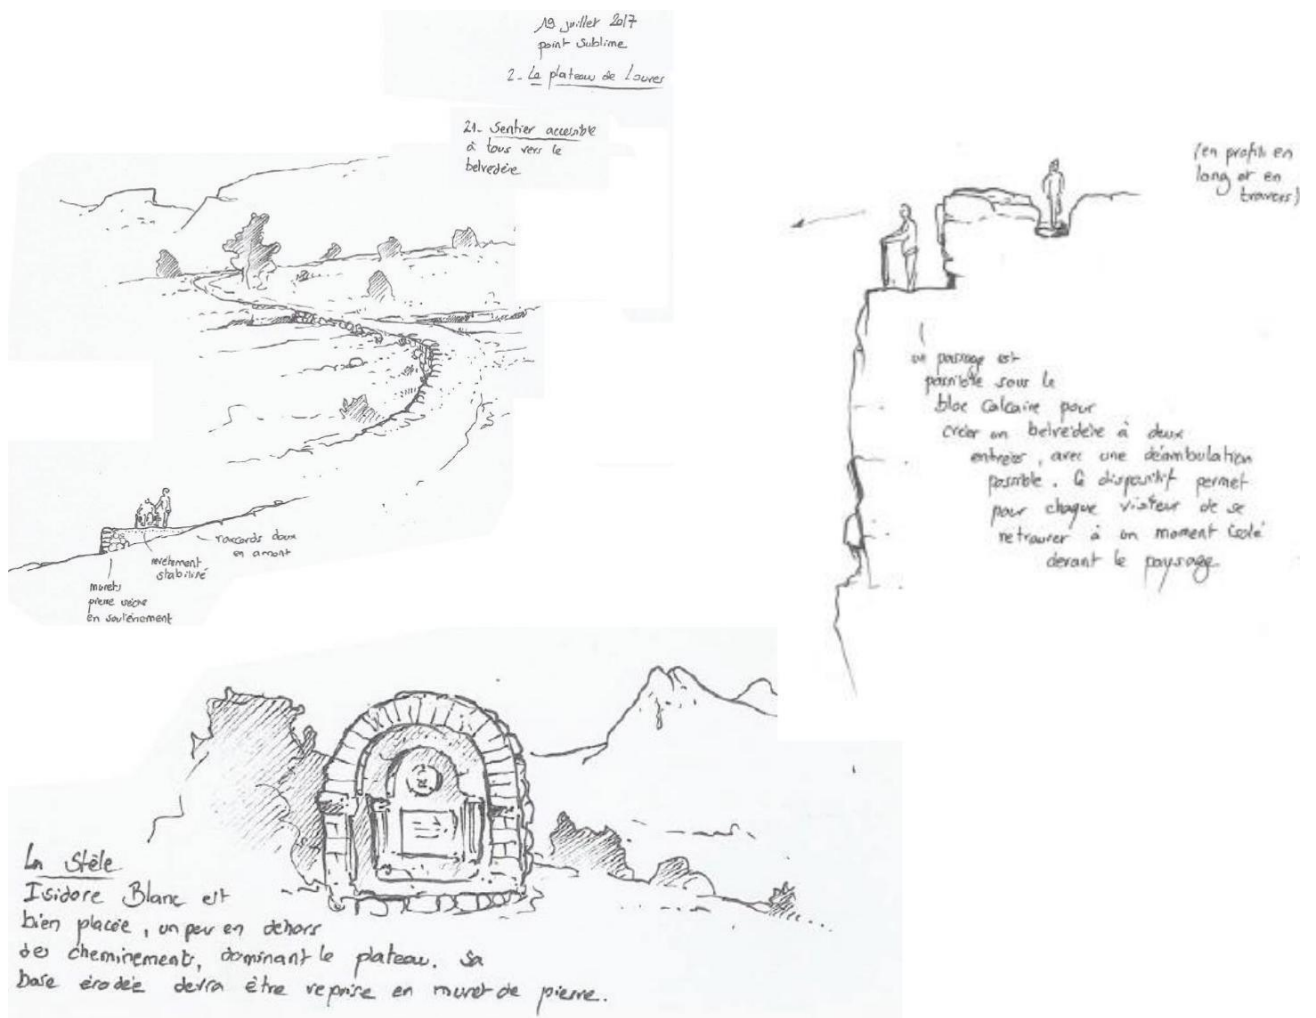 19 juillet 2017
point Sublime
2- Le plateau de Louves
21- Sentier accessible
à tous vers le
belvédère
(en profil en
long et en
travers)
un passage est
possible sous le
bloc calcaire pour
créer un belvédère à deux
entrées, avec une déambulation
possible. Ce dispositif permet
pour chaque visiteur de se
retrouver à un moment isolé
devant le paysage
raccords doux
en amont
revêtement
stabilisé
murets
pierre sèche
en soutènement
La Stèle
Isidore Blanc est
bien placée, un peu en dehors
des cheminements, dominant le plateau. Sa
base érodée devra être reprise en muret de pierre.